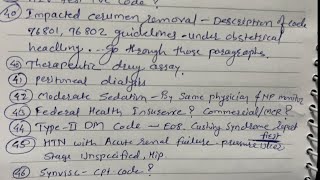 Code ?
40 Impacted cerumen removal - Description of code
76801, 76802 guidelines - under obstetrical
headline... go through those paragraphs.
40 Therapeutic drug assay.
41 peritoneal dialysis
42 Moderate Sedation - By Same physician / NP
43 Federal Health Insurance ? Commercial / MCR ?
44 Type-II DM Code - E08. Cushing Syndrome report first
45 HTN with Acute renal failure - pressure ulcer
Stage Unspecified, Hip
46 Synvisc - CPT code ?